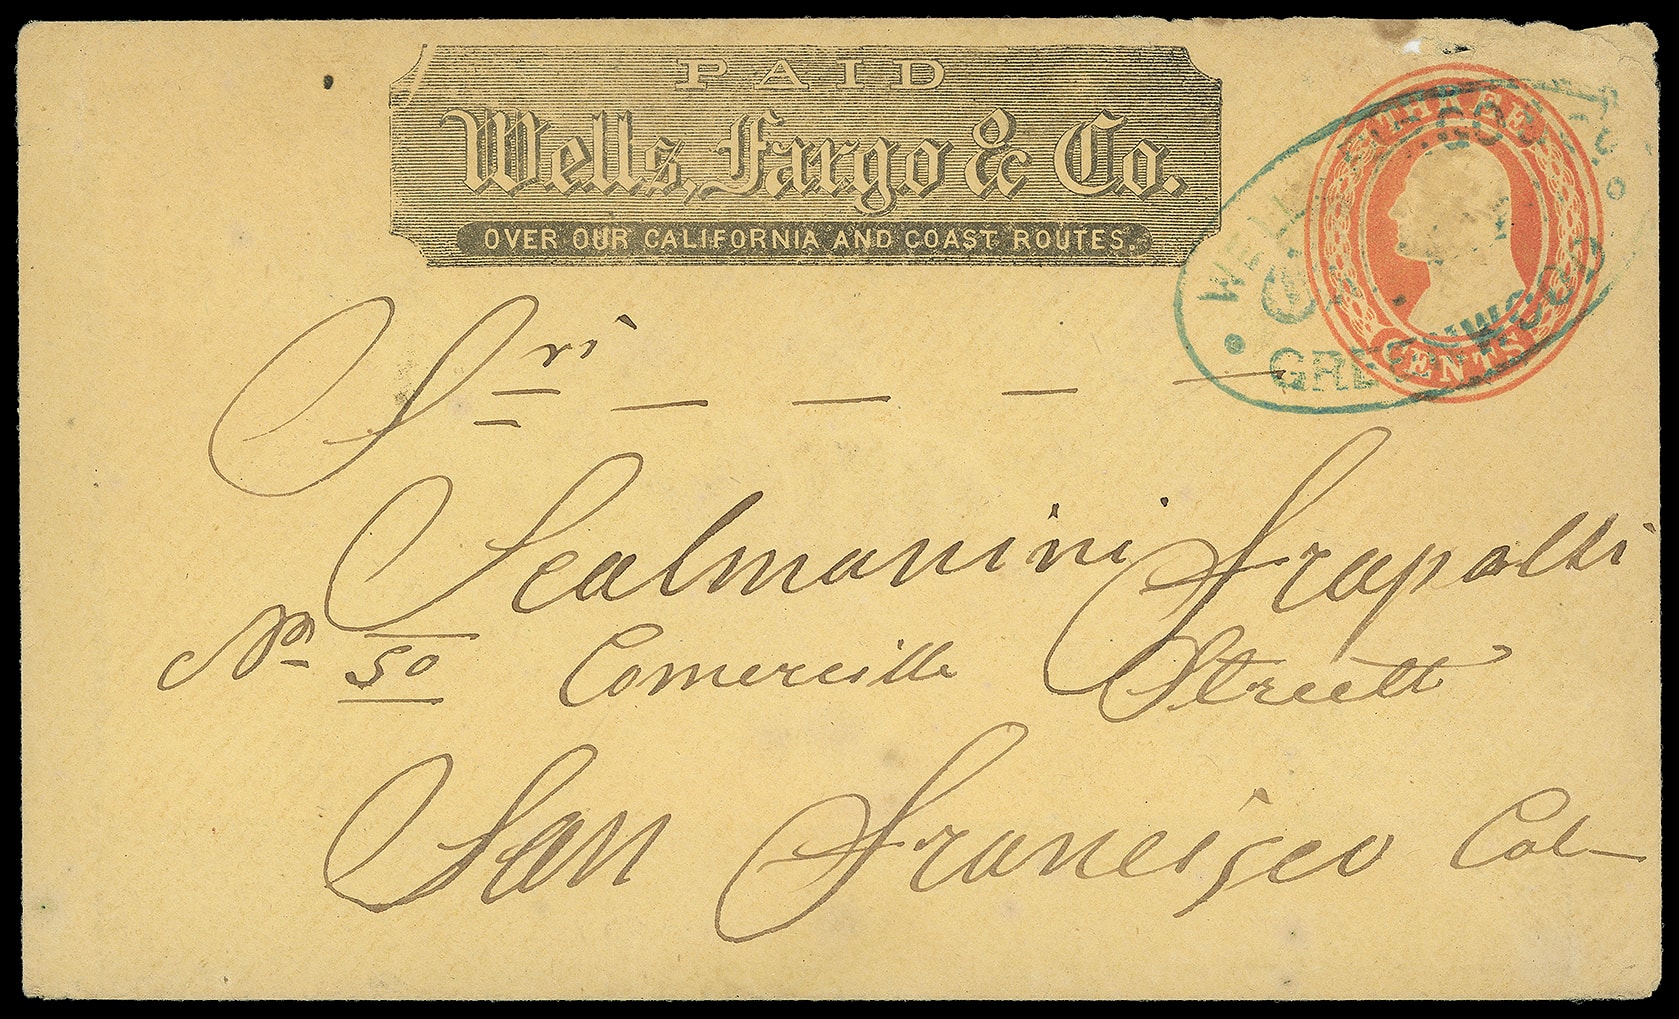 PAID
Wells, Fargo & Co.
OVER OUR CALIFORNIA AND COAST ROUTES.
THREE
CENTS
WELLS FARGO & CO.
GREENWOOD
Sri
Scalmanini Frapolli
No 50 Comercille Streett
San Francisco Cal